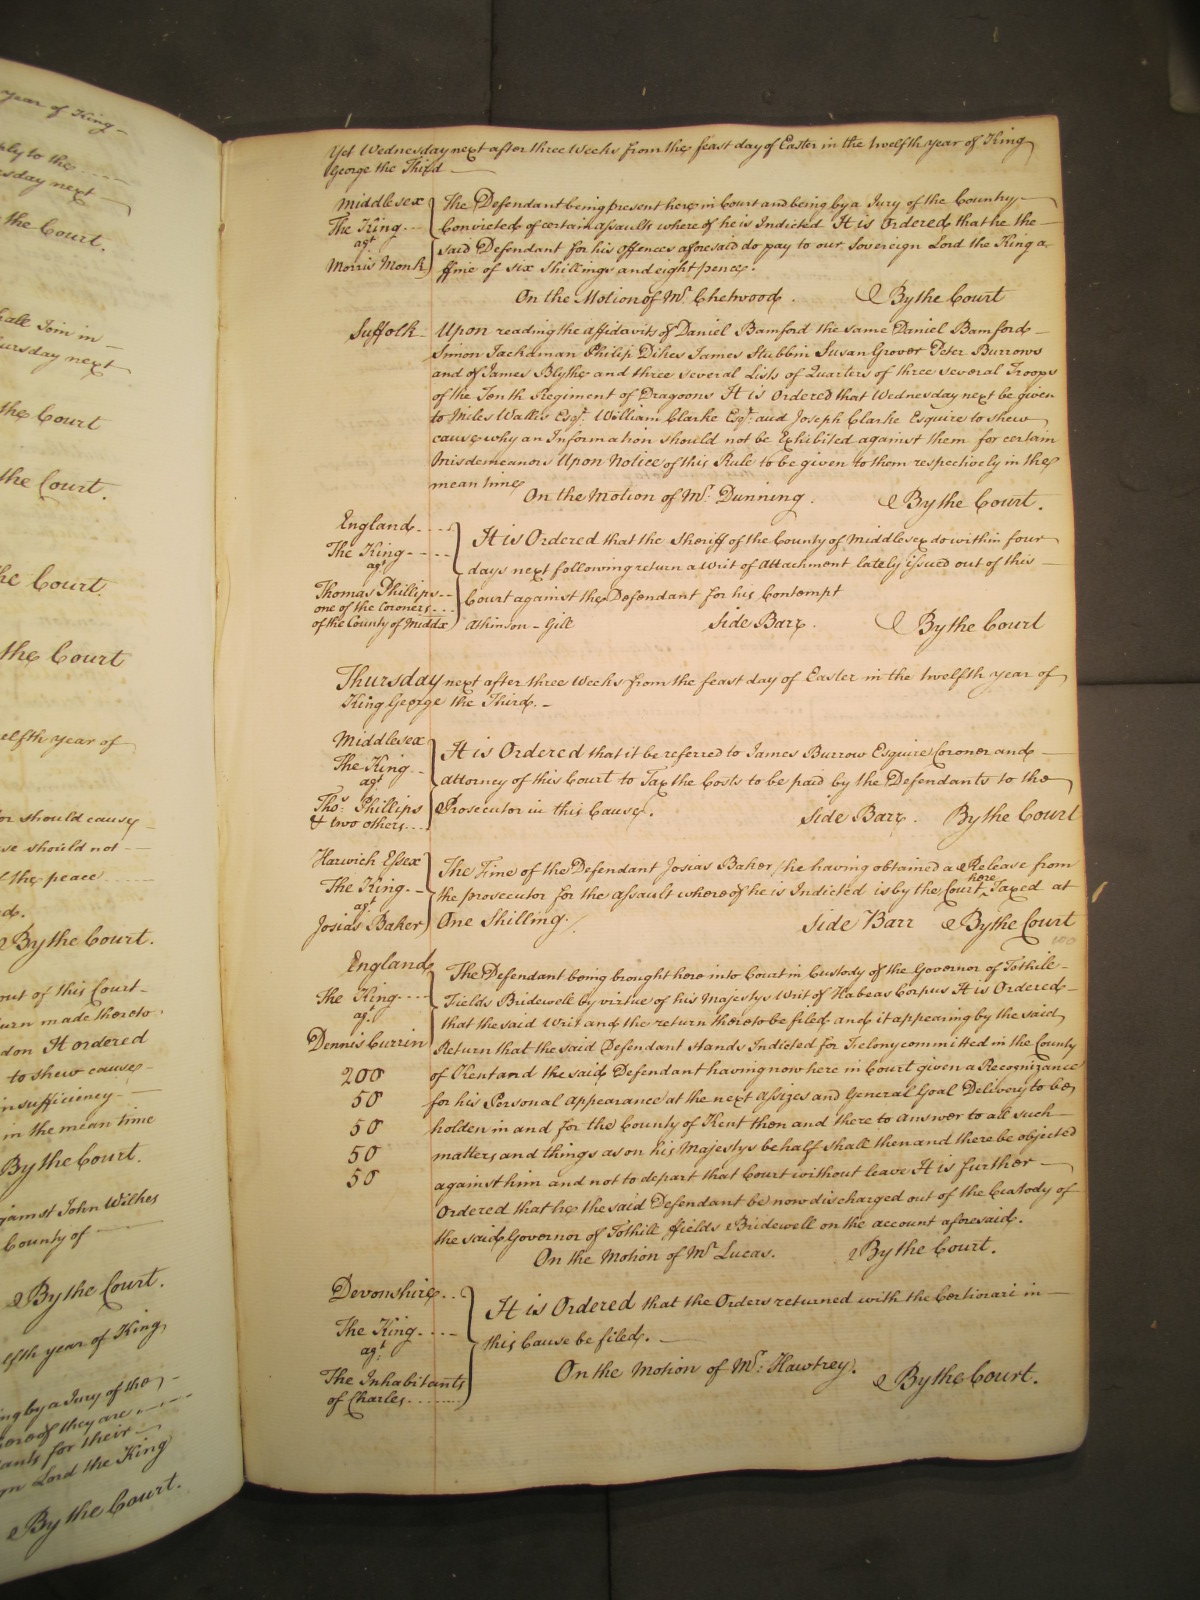 year of King
ply to the
sday next
the Court.
hall Join in
ursday next
the Court
the Court.
he Court.
the Court
elfth year of
or should cause
se should not
the peace
By the Court.
out of this Court
urn made thereto
don It ordered
to shew cause
insufficiency
in the mean time
By the Court.
against John Wilkes
County of
By the Court.
lfth year of King
ng by a Jury of the
ereof they are
ants for their
gn Lord the King
By the Court.
Yet Wednesday next after three Weeks from the feast day of Easter in the twelfth year of King
George the Third
Middlesex The Defendant being present here in Court and being by a Jury of the Country
The King Convicted of certain assaults whereof he is Indicted It is Ordered that he the
agt said Defendant for his Offences aforesaid do pay to our Sovereign Lord the King a
Morris Monk ffine of six Shillings and eight pence.
On the Motion of Mr. Chetwood. By the Court
Suffolk Upon reading the affidavits of Daniel Bamford the same Daniel Bamford
Simon Jackaman Philip Dikes James Stubbin Susan Grover Peter Burrows
and of James Blythe and three several Lists of Quarters of three several Troops
of the Tenth Regiment of Dragoons It is Ordered that Wednesday next be given
to Miles Wallis Esqr. William Clarke Esqr. and Joseph Clarke Esquire to shew
cause why an Information should not be Exhibited against them for certain
Misdemeanors Upon Notice of this Rule to be given to them respectively in the
mean time
On the Motion of Mr. Dunning. By the Court.
England
The King It is Ordered that the Sheriff of the County of Middlesex do within four
agt days next following return a Writ of Attachment lately issued out of this
Thomas Phillips Court against the Defendant for his Contempt
one of the Coroners
of the County of Middx Atkinson - Gill Side Barr. By the Court
Thursday next after three Weeks from the feast day of Easter in the twelfth year of
King George the Third.
Middlesex It is Ordered that it be referred to James Burrow Esquire Coroner and
The King
agt attorney of this Court to Tax the Costs to be paid by the Defendants to the
Thos. Phillips Prosecutor in this Cause.
& two others Side Barr. By the Court
Harwich Essex The Fine of the Defendant Josias Baker (he having obtained a Release from
The King the prosecutor for the assault whereof he is Indicted is by the Court here Taxed at
agt
Josias Baker One Shilling. Side Barr By the Court
England The Defendant being brought here into Court in Custody of the Governor of Tothile
The King Fields Bridewell by virtue of his Majestys Writ of Habeas Corpus It is Ordered
agt that the said Writ and the return thereto be filed and it appearing by the said
Dennis Currin Return that the said Defendant stands Indicted for Felony committed in the County
200 of Kent and the said Defendant having now here in Court given a Recognizance
50 for his Personal Appearance at the next Assizes and General Goal Delivery to be
50 holden in and for the County of Kent then and there to answer to all such
50 matters and things as on his Majestys behalf shall then and there be objected
50 against him and not to depart that Court without leave It is further
Ordered that he the said Defendant be now discharged out of the Custody of
the said Governor of Tothill ffields Bridewell on the account aforesaid.
On the Motion of Mr Lucas. By the Court.
Devonshire It is Ordered that the Orders returned with the Certiorari in
The King
agt this Cause be filed.
The Inhabitants On the Motion of Mr. Hawtrey. By the Court.
of Charles